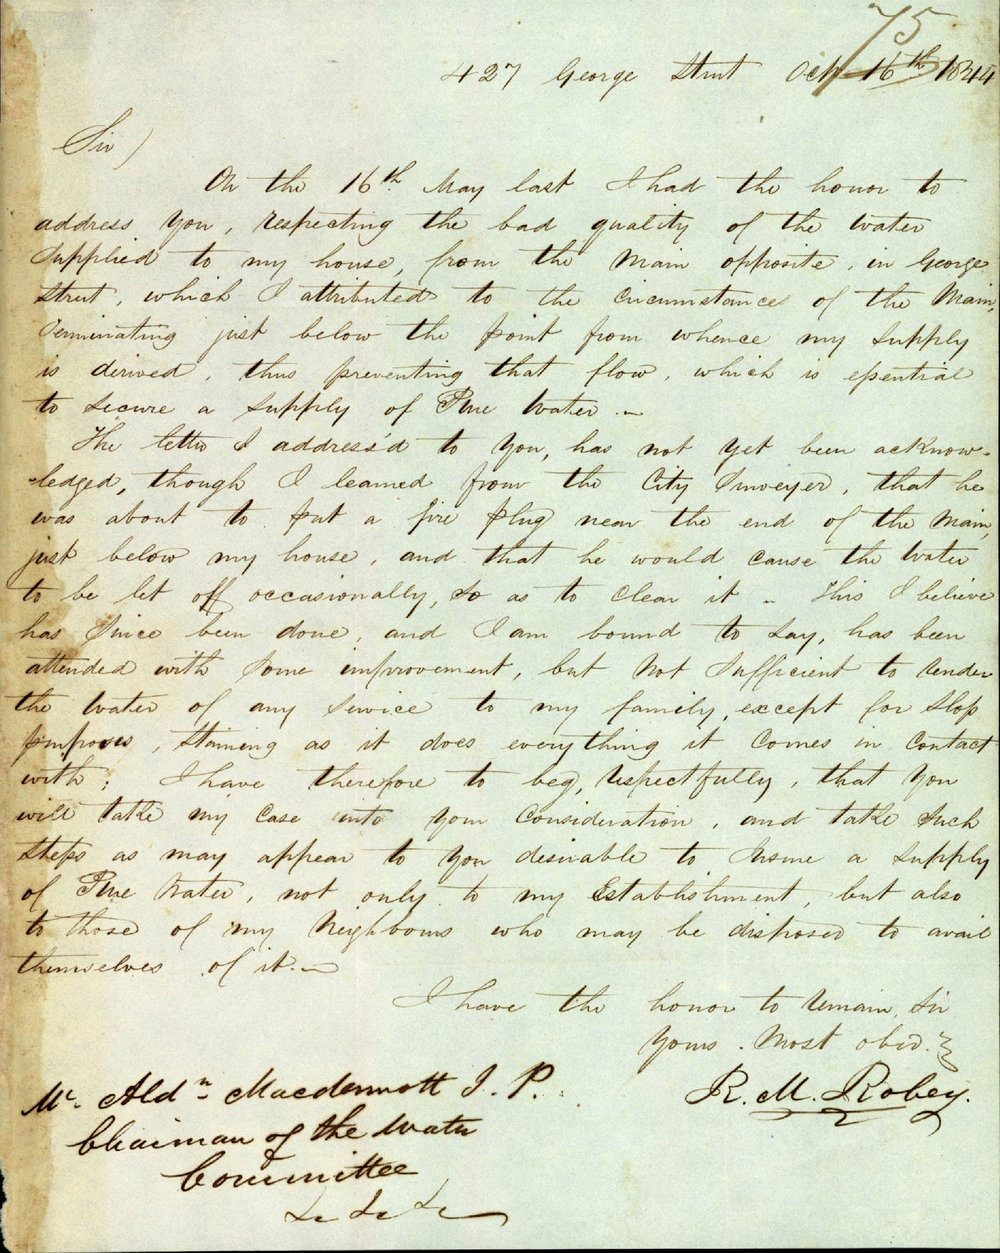 75
427 George Street Oct 16th 1844
Sir)
On the 16th May last I had the honor to
address you, respecting the bad quality of the water
supplied to my house, from the Main opposite, in George
Street, which I attributed to the circumstances of the Main,
terminating just below the point from whence my supply
is derived, thus preventing that flow, which is essential
to secure a supply of Pure Water.
The letter I address'd to you, has not yet been acknow-
ledged, though I learned from the City Surveyer, that he
was about to put a fire plug near the end of the Main,
just below my house, and that he would cause the water
to be let off occasionally, so as to clear it - This I believe
has since been done, and I am bound to say, has been
attended with some improvement, but not sufficient to render
the water of any service to my family, except for slop
purposes, staining as it does everything it comes in contact
with; I have therefore to beg, respectfully, that you
will take my case into your consideration, and take such
steps as may appear to you desirable to insure a supply
of Pure Water, not only to my Establishment, but also
to those of my Neighbours who may be disposed to avail
themselves of it. -
I have the honor to remain, Sir
Yours Most obed.
R. M. Robey.
Mr. Aldn. Macdermott J. P.
Chairman of the Water
Committee
&c &c &c